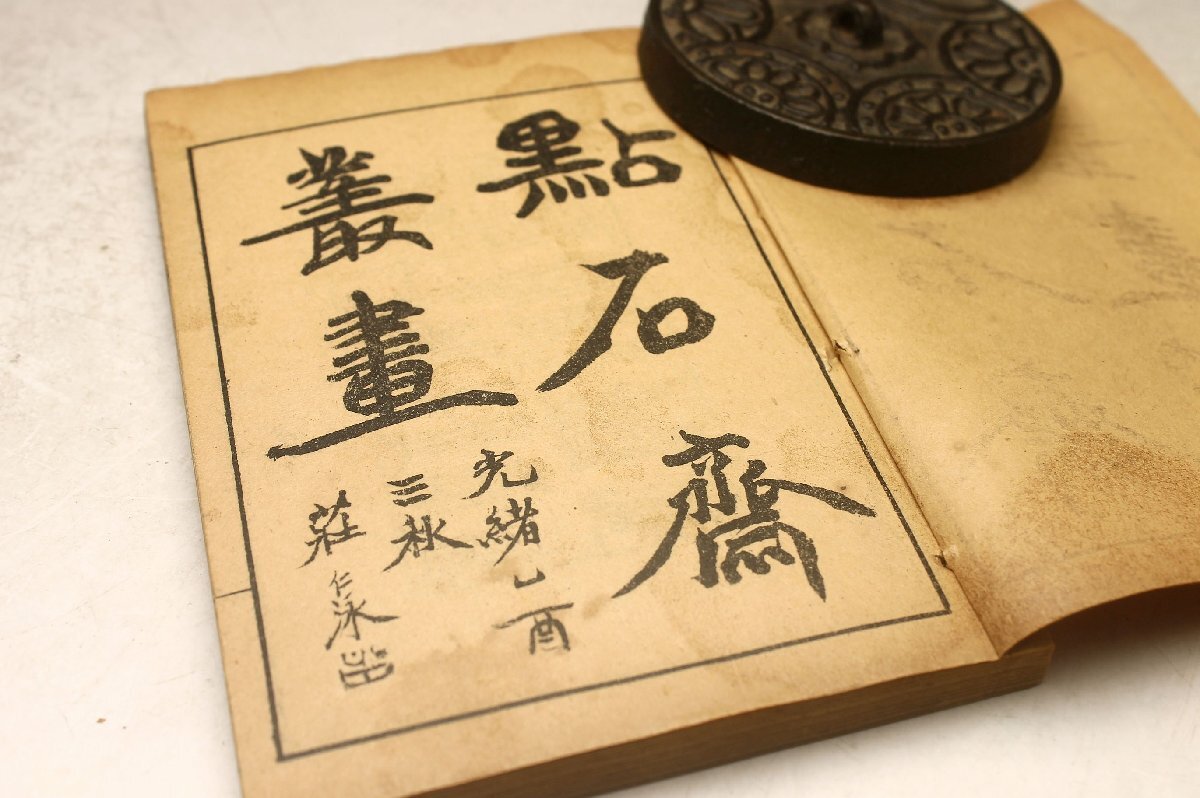 點石齋
叢畫
光緒乙酉
三秋
莊仁泳